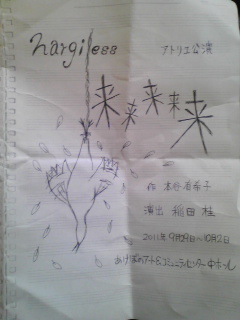 nargiless
アトリエ公演
来来来来来
作 本谷有希子
演出 稲田 桂
2011年 9月29日〜10月2日
あけぼのアート&コミュニティセンター 中ホール